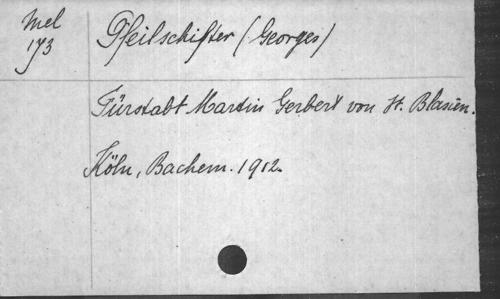 Mel
173
Pfeilschifter (Georges)
Fürstabt Martin Gerbert von St. Blasien.
Köln, Bachem. 1912.